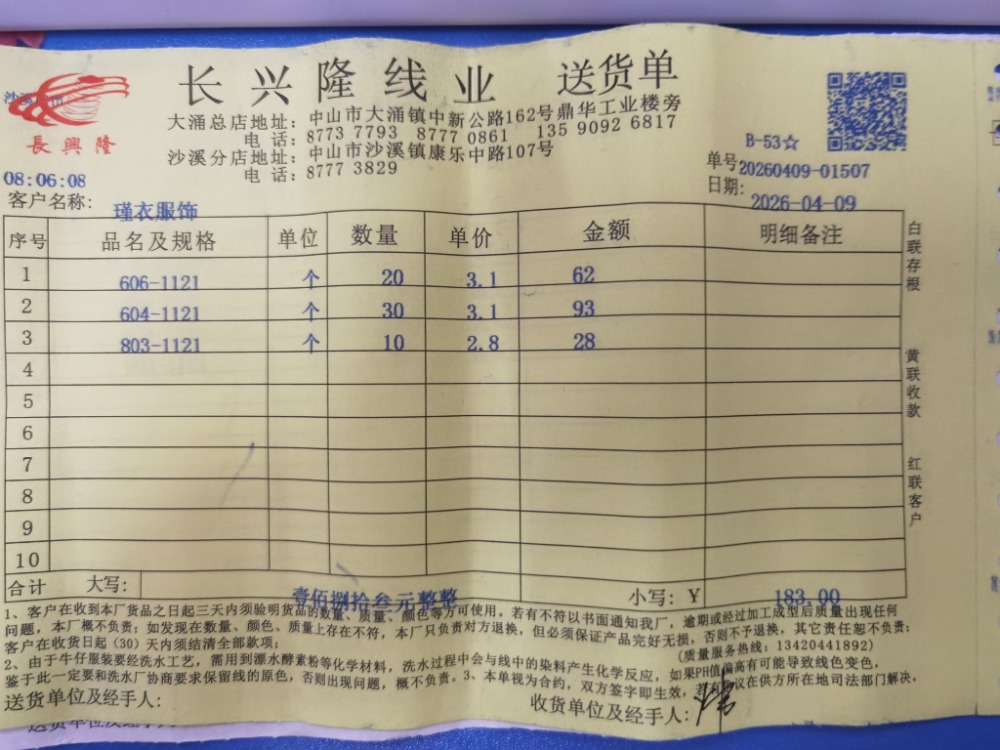 长兴隆线业 送货单
長興隆
大涌总店地址：中山市大涌镇中新公路162号鼎华工业楼旁
电 话：8773 7793 8777 0861 135 9092 6817
沙溪分店地址：中山市沙溪镇康乐中路107号
电 话：8777 3829
B-53☆
08:06:08
单号20260409-01507
客户名称：瑾衣服饰
日期：2026-04-09
序号 品名及规格 单位 数量 单价 金额 明细备注
1 606-1121 个 20 3.1 62
2 604-1121 个 30 3.1 93
3 803-1121 个 10 2.8 28
4
5
6
7
8
9
10
合计 大写：壹佰捌拾叁元整整 小写：Y 183.00
白联存根
黄联收款
红联客户
1、客户在收到本厂货品之日起三天内须验明货品的数量、质量、颜色等方可使用。若有不符以书面通知我厂，逾期或经过加工成型后质量出现任何
问题，本厂概不负责；如发现在数量、颜色、质量上存在不符，本厂只负责对方退换，但必须保证产品完好无损，否则不予退换，其它责任恕不负责；
客户在收货日起（30）天内须结清全部款项；
(质量服务热线：13420441892)
2、由于牛仔服装要经洗水工艺，需用到漂水酵素粉等化学材料，洗水过程中会与线中的染料产生化学反应，如果PH值偏高有可能导致线色变色，
鉴于此一定要和洗水厂协商要求保留线的原色，否则出现问题，概不负责。3、本单视为合约，双方签字即生效，若有争议在供方所在地司法部门解决。
送货单位及经手人：
收货单位及经手人：